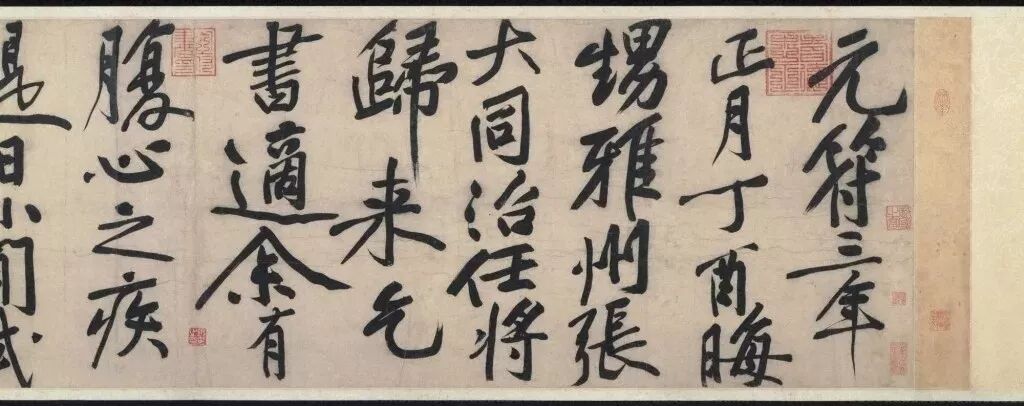 元符三年
正月丁酉晦
甥雅州張
大同治任將
歸来乞
書適余有
腹心之疾
是日小間試